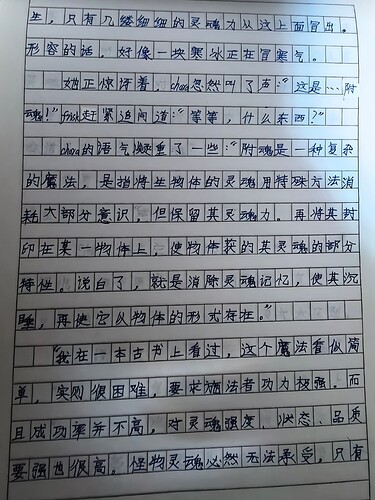 生，只有几缕细细的灵魂力从这上面冒出。
形容的话，好像一块寒冰正在冒寒气。
她正惊讶着，chara忽然叫了声："这是…附
魂！"frisk赶紧追问道："等等，什么东西？"
chara的语气凝重了一些："附魂是一种复杂
的魔法，是指将生物体的灵魂用特殊方法消
耗大部分意识，但保留其灵魂力。再将其封
印在某一物体上，使物体获的其灵魂的部分
特性。说白了，就是消除灵魂记忆，使其沉
睡，再使它以物体的形式存在。"
"我在一本古书上看过，这个魔法看似简
单，实则很困难，要求施法者功力极强。而
且成功率并不高。对灵魂强度、状态、品质
要强也很高。怪物灵魂必然无法承受，只有